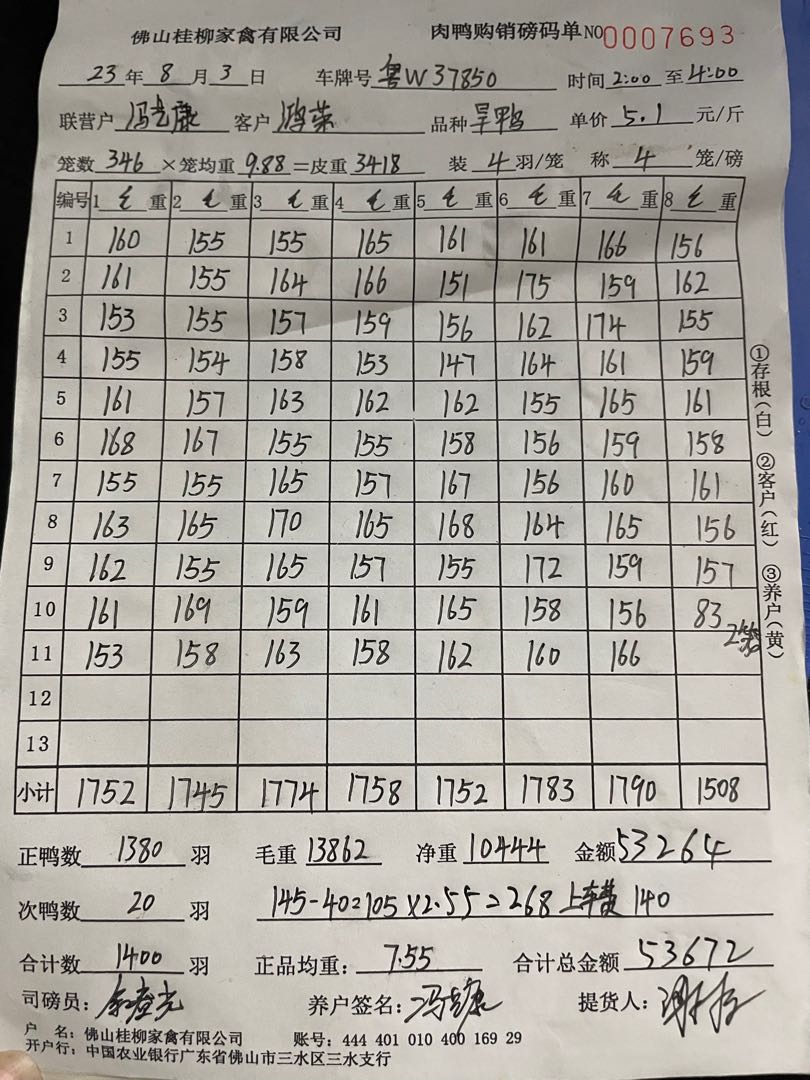 佛山桂柳家禽有限公司 肉鸭购销磅码单NO0007693
23年8月3日 车牌号粤W37850 时间2:00至4:00
联营户冯志康 客户鸿荣 品种旱鸭 单价5.1元/斤
笼数346×笼均重9.88=皮重3418 装4羽/笼 称4笼/磅
编号 1毛重 2毛重 3毛重 4毛重 5毛重 6毛重 7毛重 8毛重
1 160 155 155 165 161 161 166 156
2 161 155 164 166 151 175 159 162
3 153 155 157 159 156 162 174 155
4 155 154 158 153 147 164 161 159
5 161 157 163 162 162 155 165 161
6 168 167 155 155 158 156 159 158
7 155 155 165 157 167 156 160 161
8 163 165 170 165 168 164 165 156
9 162 155 165 157 155 172 159 157
10 161 169 159 161 165 158 156 83
2笼
11 153 158 163 158 162 160 166
12
13
小计 1752 1745 1774 1758 1752 1783 1790 1508
①存根(白) ②客户(红) ③养户(黄)
正鸭数1380羽 毛重13862 净重10444 金额53264
次鸭数20羽 145-40=105×2.55=268上车费140
合计数1400羽 正品均重:7.55 合计总金额53672
司磅员: 养户签名: 提货人:
户名:佛山桂柳家禽有限公司 账号:444 401 010 400 169 29
开户行:中国农业银行广东省佛山市三水区三水支行